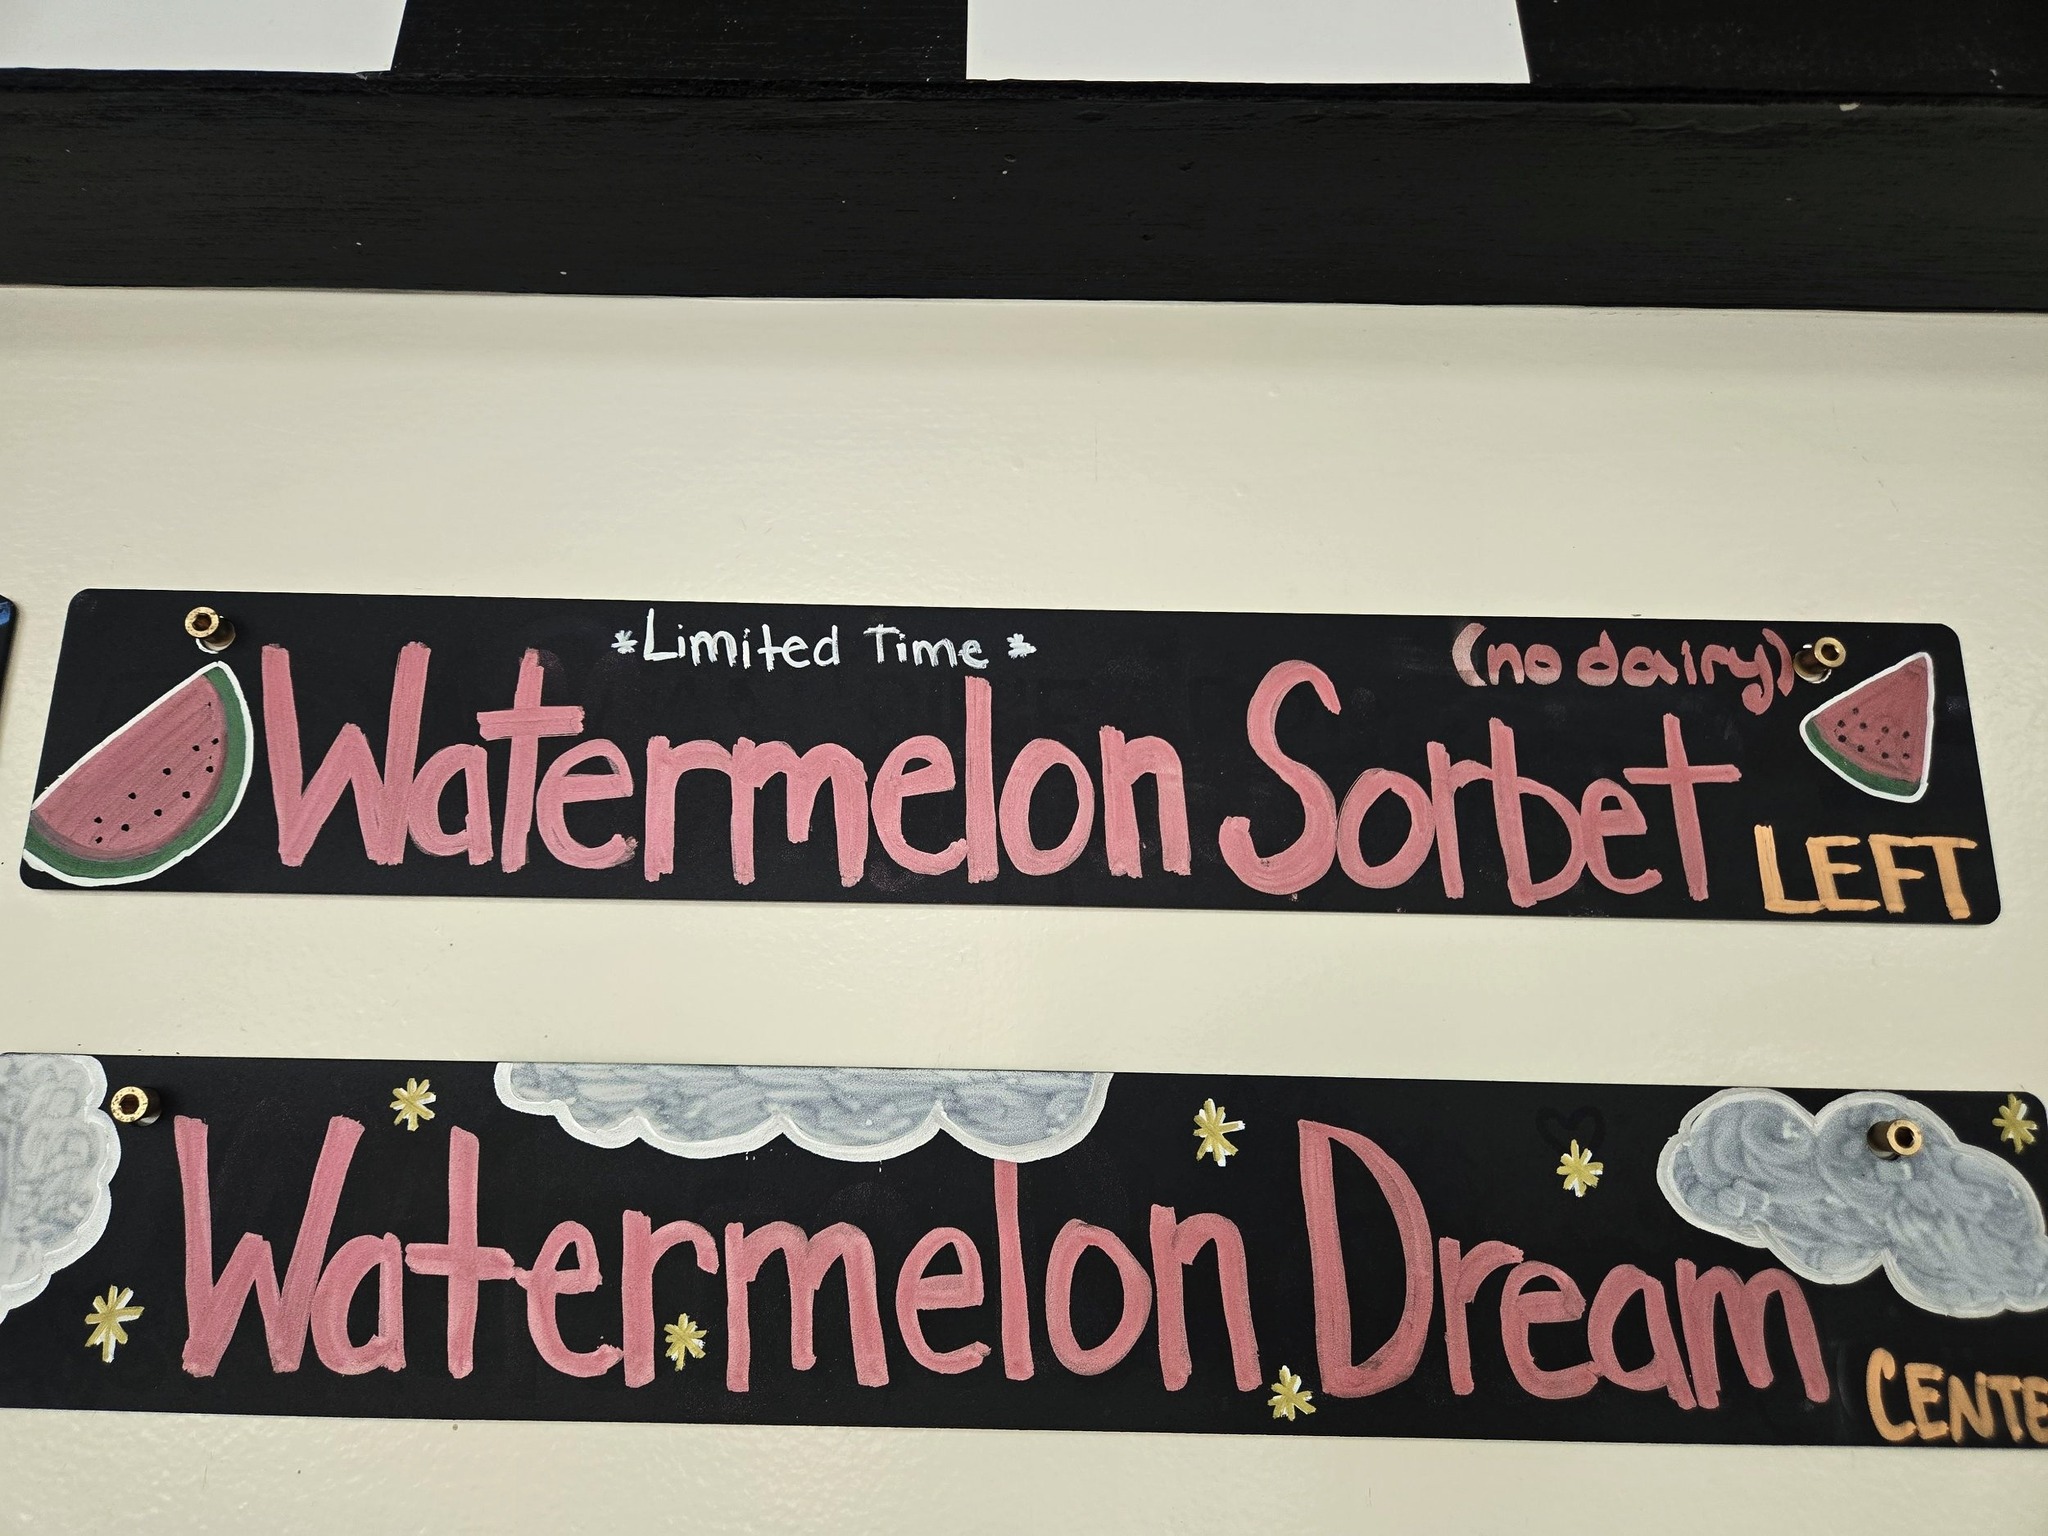 *Limited Time*
(no dairy)
Watermelon Sorbet
LEFT
Watermelon Dream
CENTE